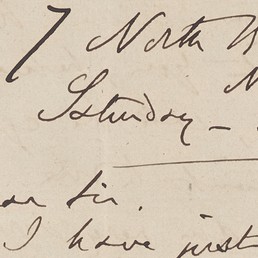 7 North W
N
Saturday -
ear Sir.
I have just